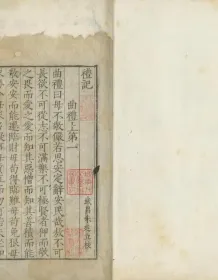 禮記
曲禮上第一
曲禮曰毋不敬儼若思安定辭安民哉敖不可
長欲不可從志不可滿樂不可極賢者狎而敬
之畏而愛之愛而知其惡憎而知其善積而能
散安安而能遷臨財毋苟得臨難毋苟免很毋